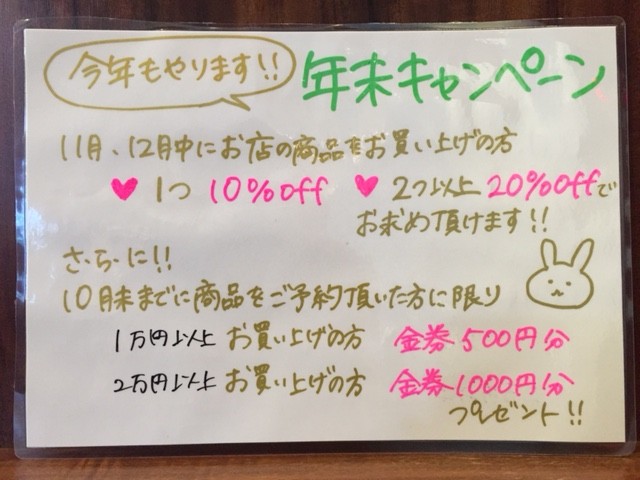 今年もやります!!
年末キャンペーン
11月、12月中にお店の商品をお買い上げの方
♥ 1つ 10%off ♥ 2つ以上 20%offで
お求め頂けます!!
さ・ら・に!!
10月末までに商品をご予約頂いた方に限り
1万円以上 お買い上げの方 金券500円分
2万円以上 お買い上げの方 金券1000円分
プレゼント!!